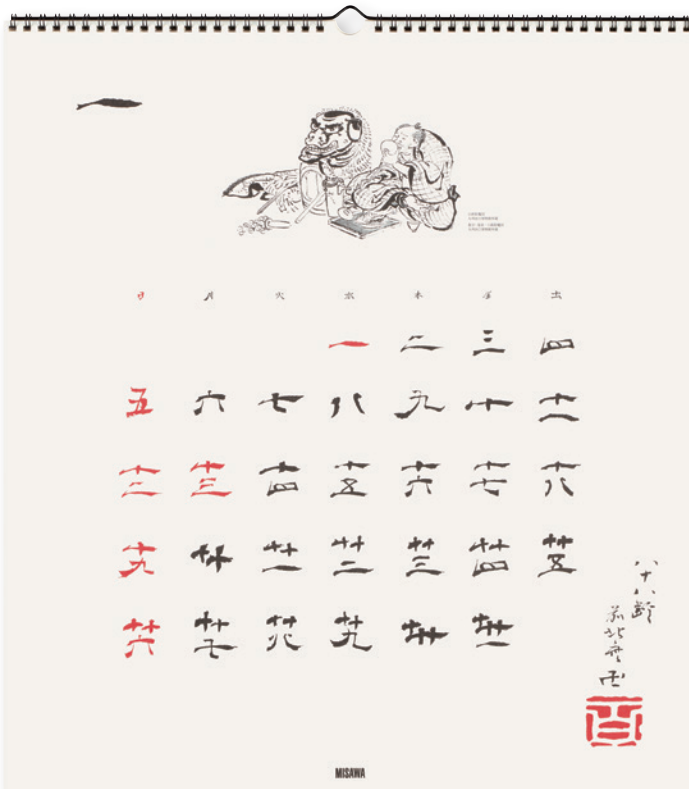 一
日 月 火 水 木 金 土
一 二 三 四
五 六 七 八 九 十 十一
十二 十三 十四 十五 十六 十七 十八
十九 廿 廿一 廿二 廿三 廿四 廿五
廿六 廿七 廿八 廿九 卅 卅一
八十八齢
MISAWA